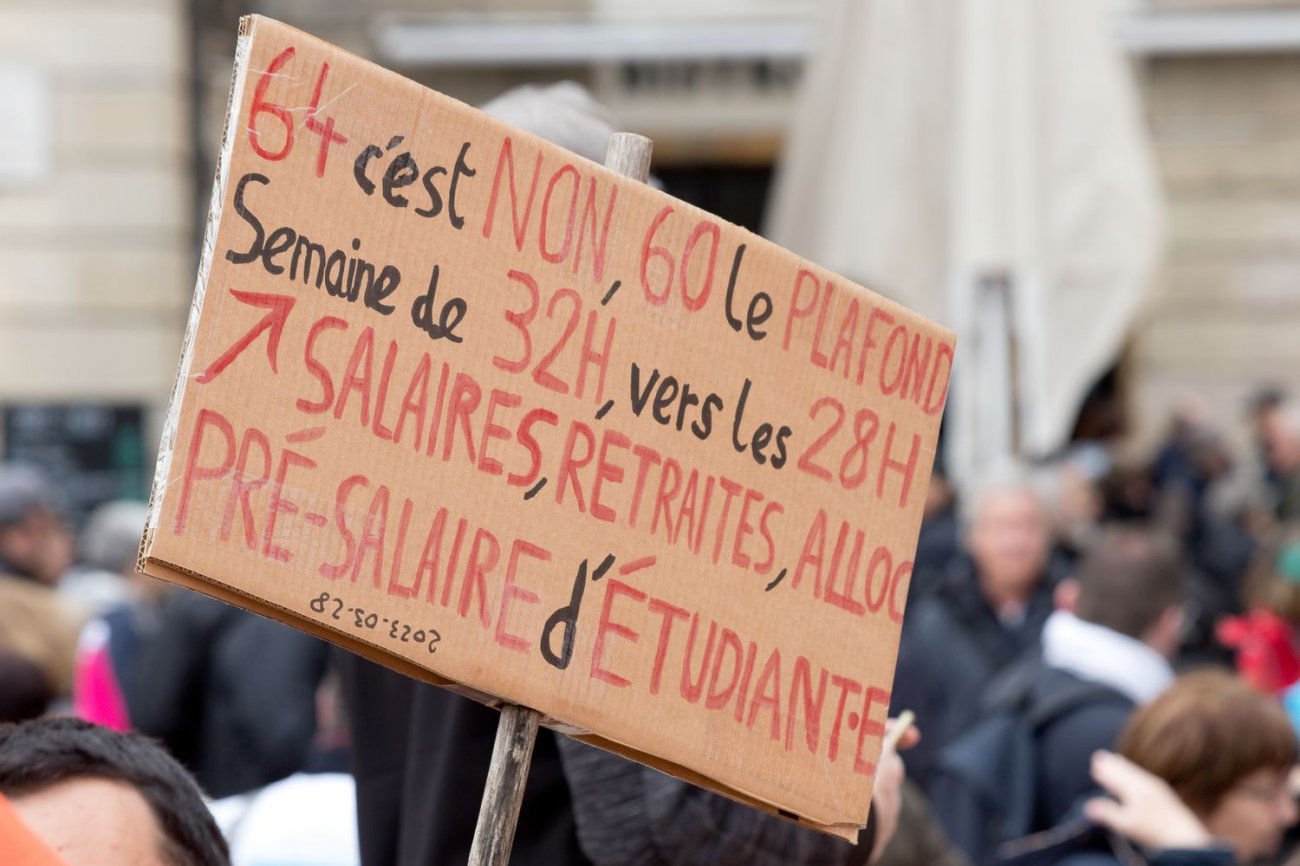 64 c'est NON, 60 le PLAFOND
Semaine de 32H, vers les 28H
↗ SALAIRES, RETRAITES, ALLOC
PRÉ-SALAIRE d'ÉTUDIANT·E
2023-03-28